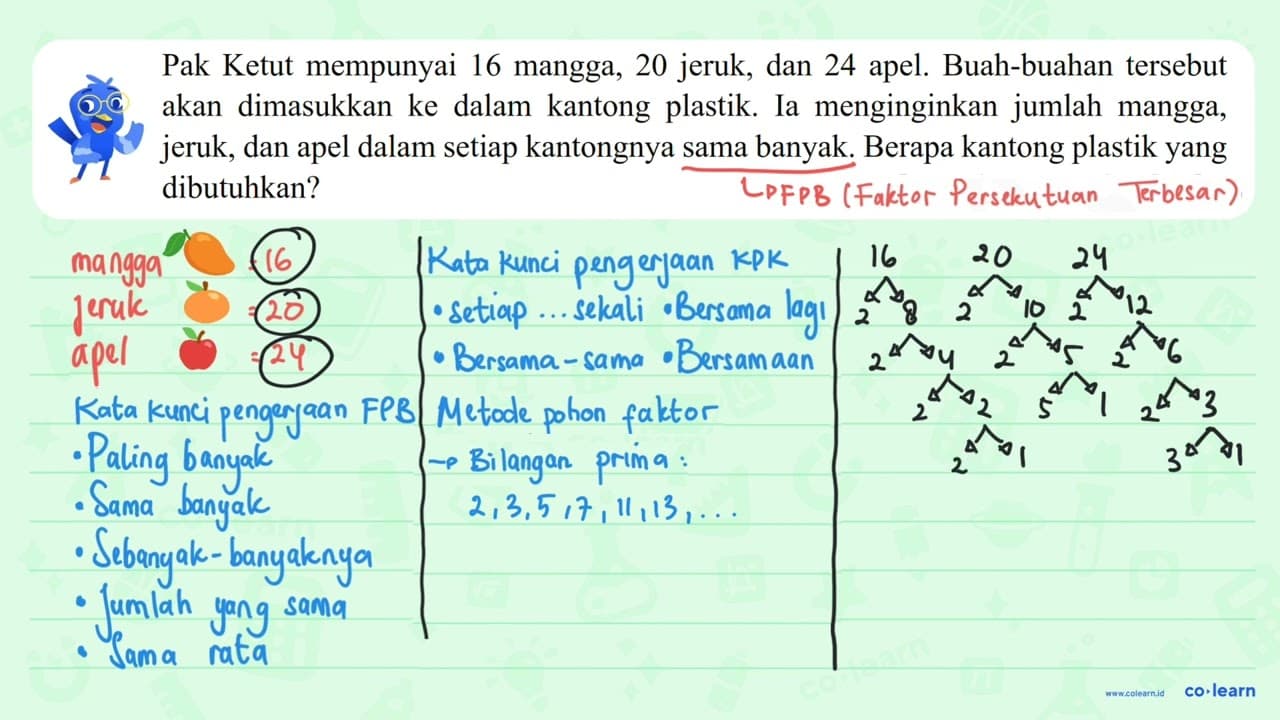 Pak Ketut mempunyai 16 mangga, 20 jeruk, dan 24 apel. Buah-buahan tersebut
akan dimasukkan ke dalam kantong plastik. Ia menginginkan jumlah mangga,
jeruk, dan apel dalam setiap kantongnya sama banyak. Berapa kantong plastik yang
dibutuhkan?
FPB (Faktor Persekutuan Terbesar)
mangga = 16
Jeruk = 20
apel = 24
Kata kunci pengerjaan FPB
• Paling banyak
• Sama banyak
• Sebanyak-banyaknya
• Jumlah yang sama
• Sama rata
Kata kunci pengerjaan KPK
• setiap ... sekali • Bersama lagi
• Bersama-sama • Bersamaan
Metode pohon faktor
→ Bilangan prima :
2, 3, 5, 7, 11, 13, ...
16 20 24
2 8 2 10 2 12
2 4 2 5 2 6
2 2 5 1 2 3
2 1 3 1
www.colearn.id co·learn